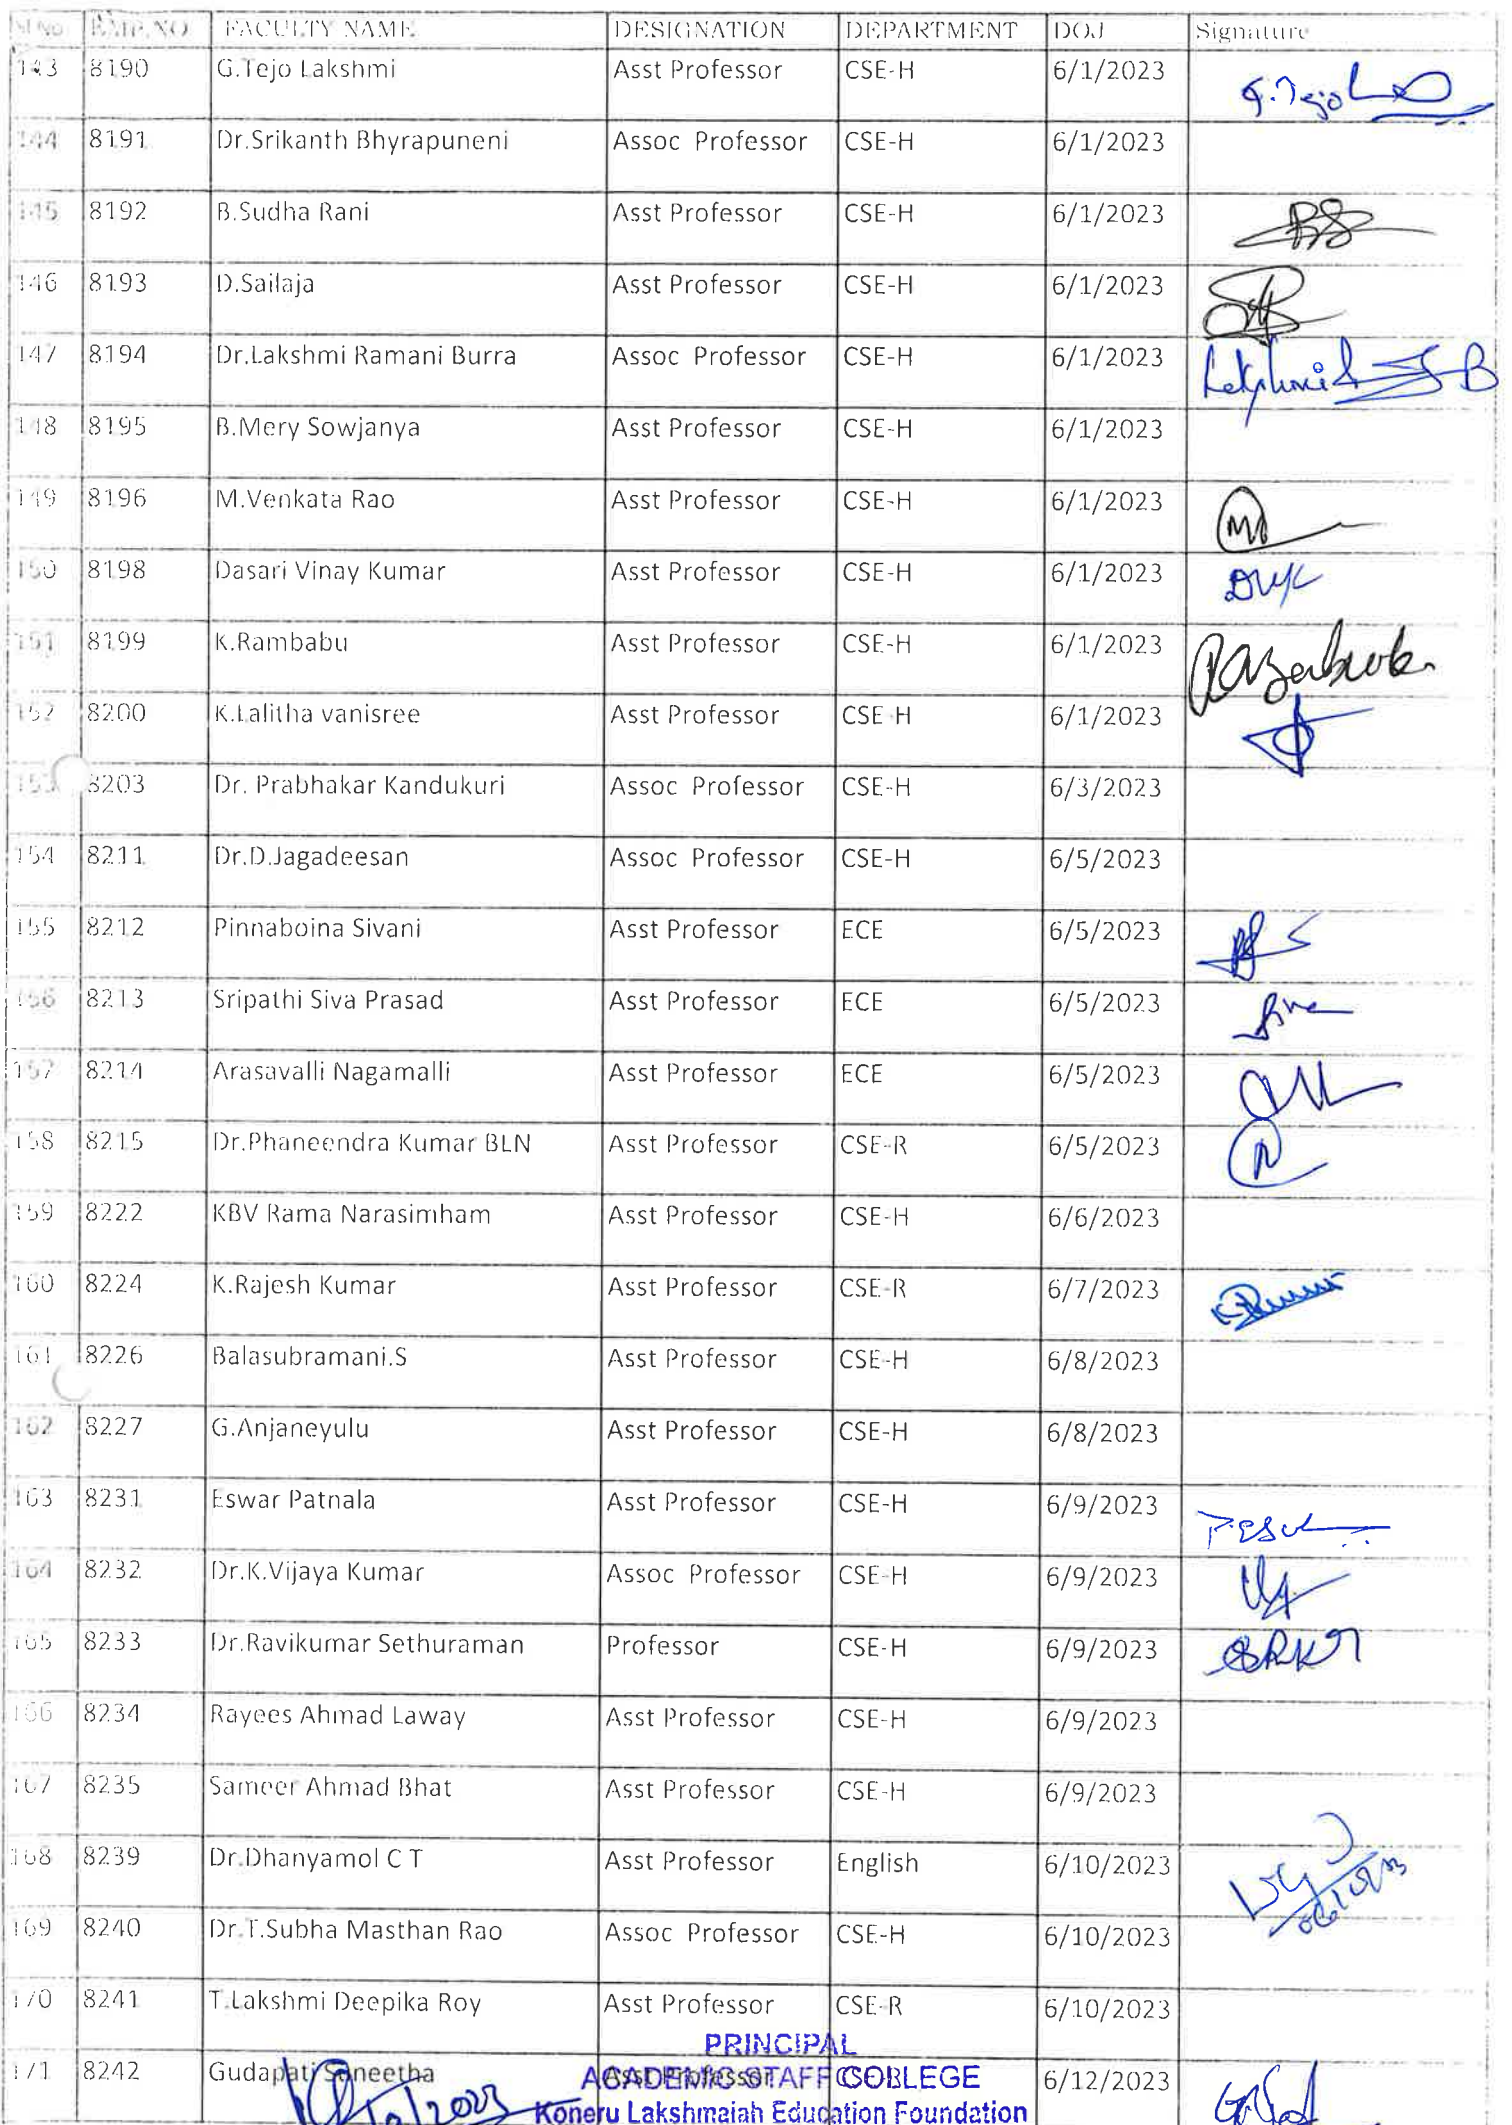 Sl No EMP.NO FACULTY NAME DESIGNATION DEPARTMENT DOJ Signature
143 8190 G.Tejo Lakshmi Asst Professor CSE-H 6/1/2023 G.Tejo
144 8191 Dr.Srikanth Bhyrapuneni Assoc Professor CSE-H 6/1/2023
145 8192 B.Sudha Rani Asst Professor CSE-H 6/1/2023
146 8193 D.Sailaja Asst Professor CSE-H 6/1/2023
147 8194 Dr.Lakshmi Ramani Burra Assoc Professor CSE-H 6/1/2023
148 8195 B.Mery Sowjanya Asst Professor CSE-H 6/1/2023
149 8196 M.Venkata Rao Asst Professor CSE-H 6/1/2023
150 8198 Dasari Vinay Kumar Asst Professor CSE-H 6/1/2023
151 8199 K.Rambabu Asst Professor CSE-H 6/1/2023
152 8200 K.Lalitha vanisree Asst Professor CSE-H 6/1/2023
153 8203 Dr. Prabhakar Kandukuri Assoc Professor CSE-H 6/3/2023
154 8211 Dr.D.Jagadeesan Assoc Professor CSE-H 6/5/2023
155 8212 Pinnaboina Sivani Asst Professor ECE 6/5/2023
156 8213 Sripathi Siva Prasad Asst Professor ECE 6/5/2023
157 8214 Arasavalli Nagamalli Asst Professor ECE 6/5/2023
158 8215 Dr.Phaneendra Kumar BLN Asst Professor CSE-R 6/5/2023
159 8222 KBV Rama Narasimham Asst Professor CSE-H 6/6/2023
160 8224 K.Rajesh Kumar Asst Professor CSE-R 6/7/2023
161 8226 Balasubramani.S Asst Professor CSE-H 6/8/2023
162 8227 G.Anjaneyulu Asst Professor CSE-H 6/8/2023
163 8231 Eswar Patnala Asst Professor CSE-H 6/9/2023
164 8232 Dr.K.Vijaya Kumar Assoc Professor CSE-H 6/9/2023
165 8233 Dr.Ravikumar Sethuraman Professor CSE-H 6/9/2023
166 8234 Rayees Ahmad Laway Asst Professor CSE-H 6/9/2023
167 8235 Sameer Ahmad Bhat Asst Professor CSE-H 6/9/2023
168 8239 Dr.Dhanyamol C T Asst Professor English 6/10/2023
169 8240 Dr.T.Subha Masthan Rao Assoc Professor CSE-H 6/10/2023
170 8241 T.Lakshmi Deepika Roy Asst Professor CSE-R 6/10/2023
PRINCIPAL
171 8242 Gudapati Suneetha Asst Professor 6/12/2023
ACADEMIC STAFF COLLEGE
Koneru Lakshmaiah Education Foundation